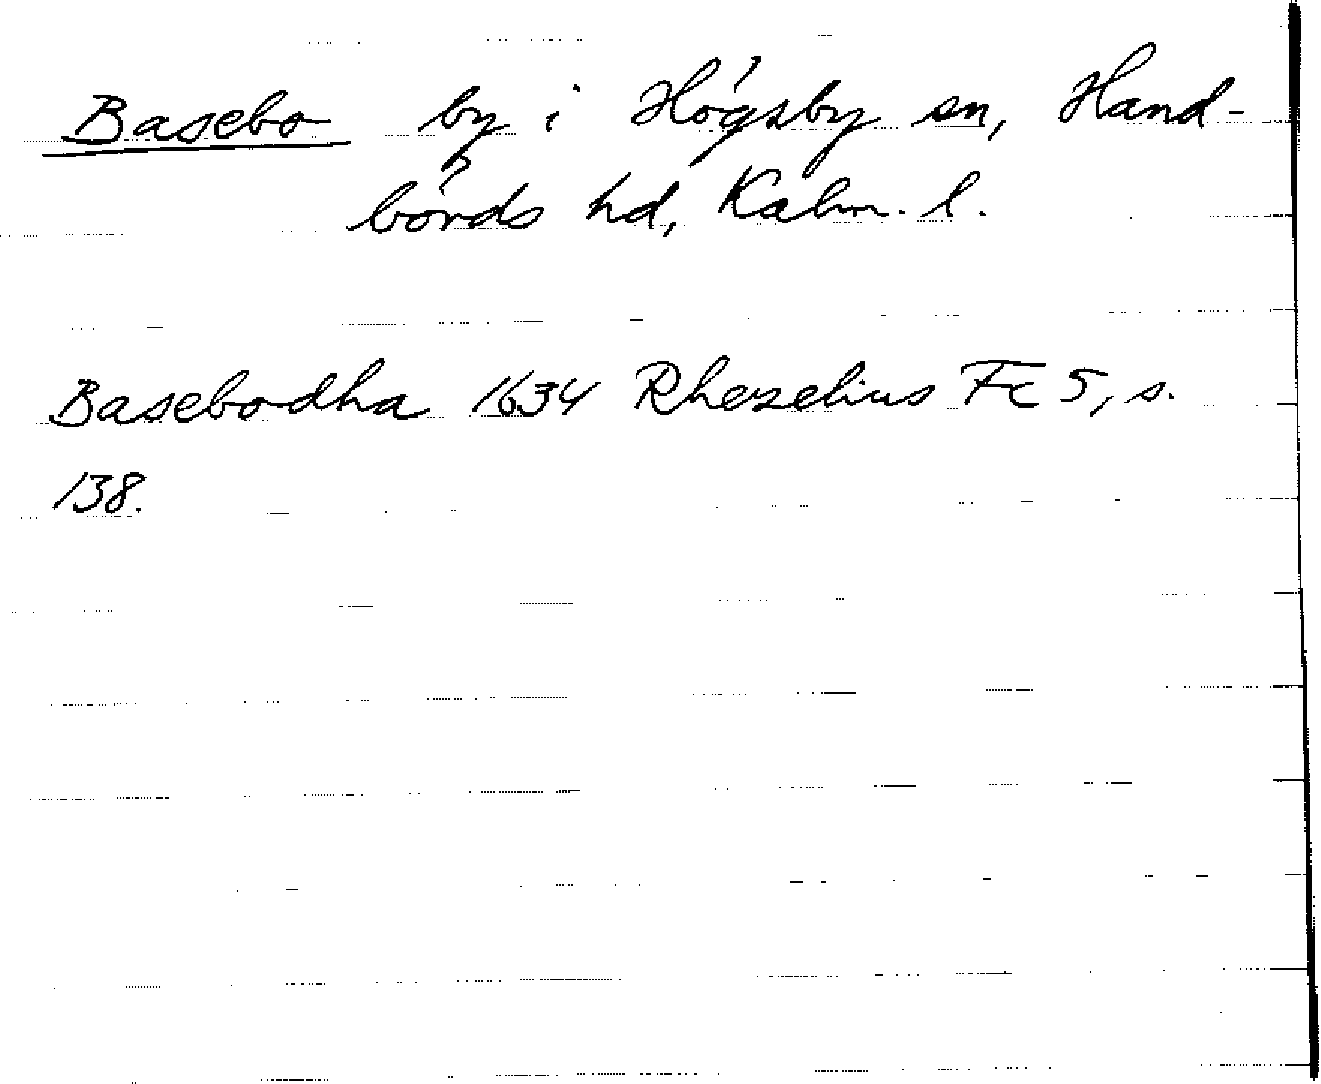 Basebo by i Högsby sn, Hand-
börds hd, Kalm. l.
Basebodha 1634 Rhezelius Fc 5, s.
138.